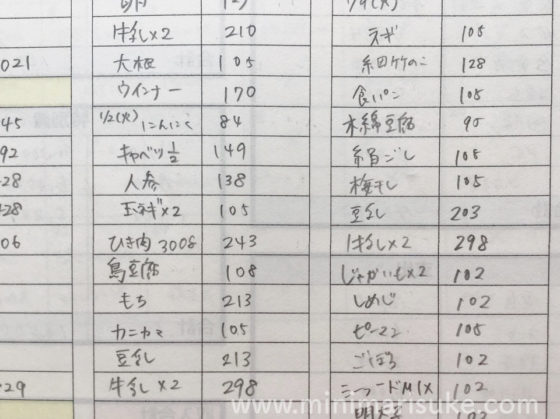 牛乳×2 210
大根 105
ウインナー 170
1/2(火) にんにく 84
キャベツ1/2 149
人参 138
玉ネギ×2 105
ひき肉 300g 243
島豆腐 108
もち 213
カニカマ 105
豆乳 213
牛乳×2 298
ネギ 105
細竹のこ 128
食パン 105
木綿豆腐 95
絹ごし 105
梅干し 105
豆乳 203
牛乳×2 298
じゃがいも×2 102
しめじ 102
ピーマン 105
ごぼう 102
シーフードMIX 102
021
45
92
28
428
06
029
www.minimarisuke.com